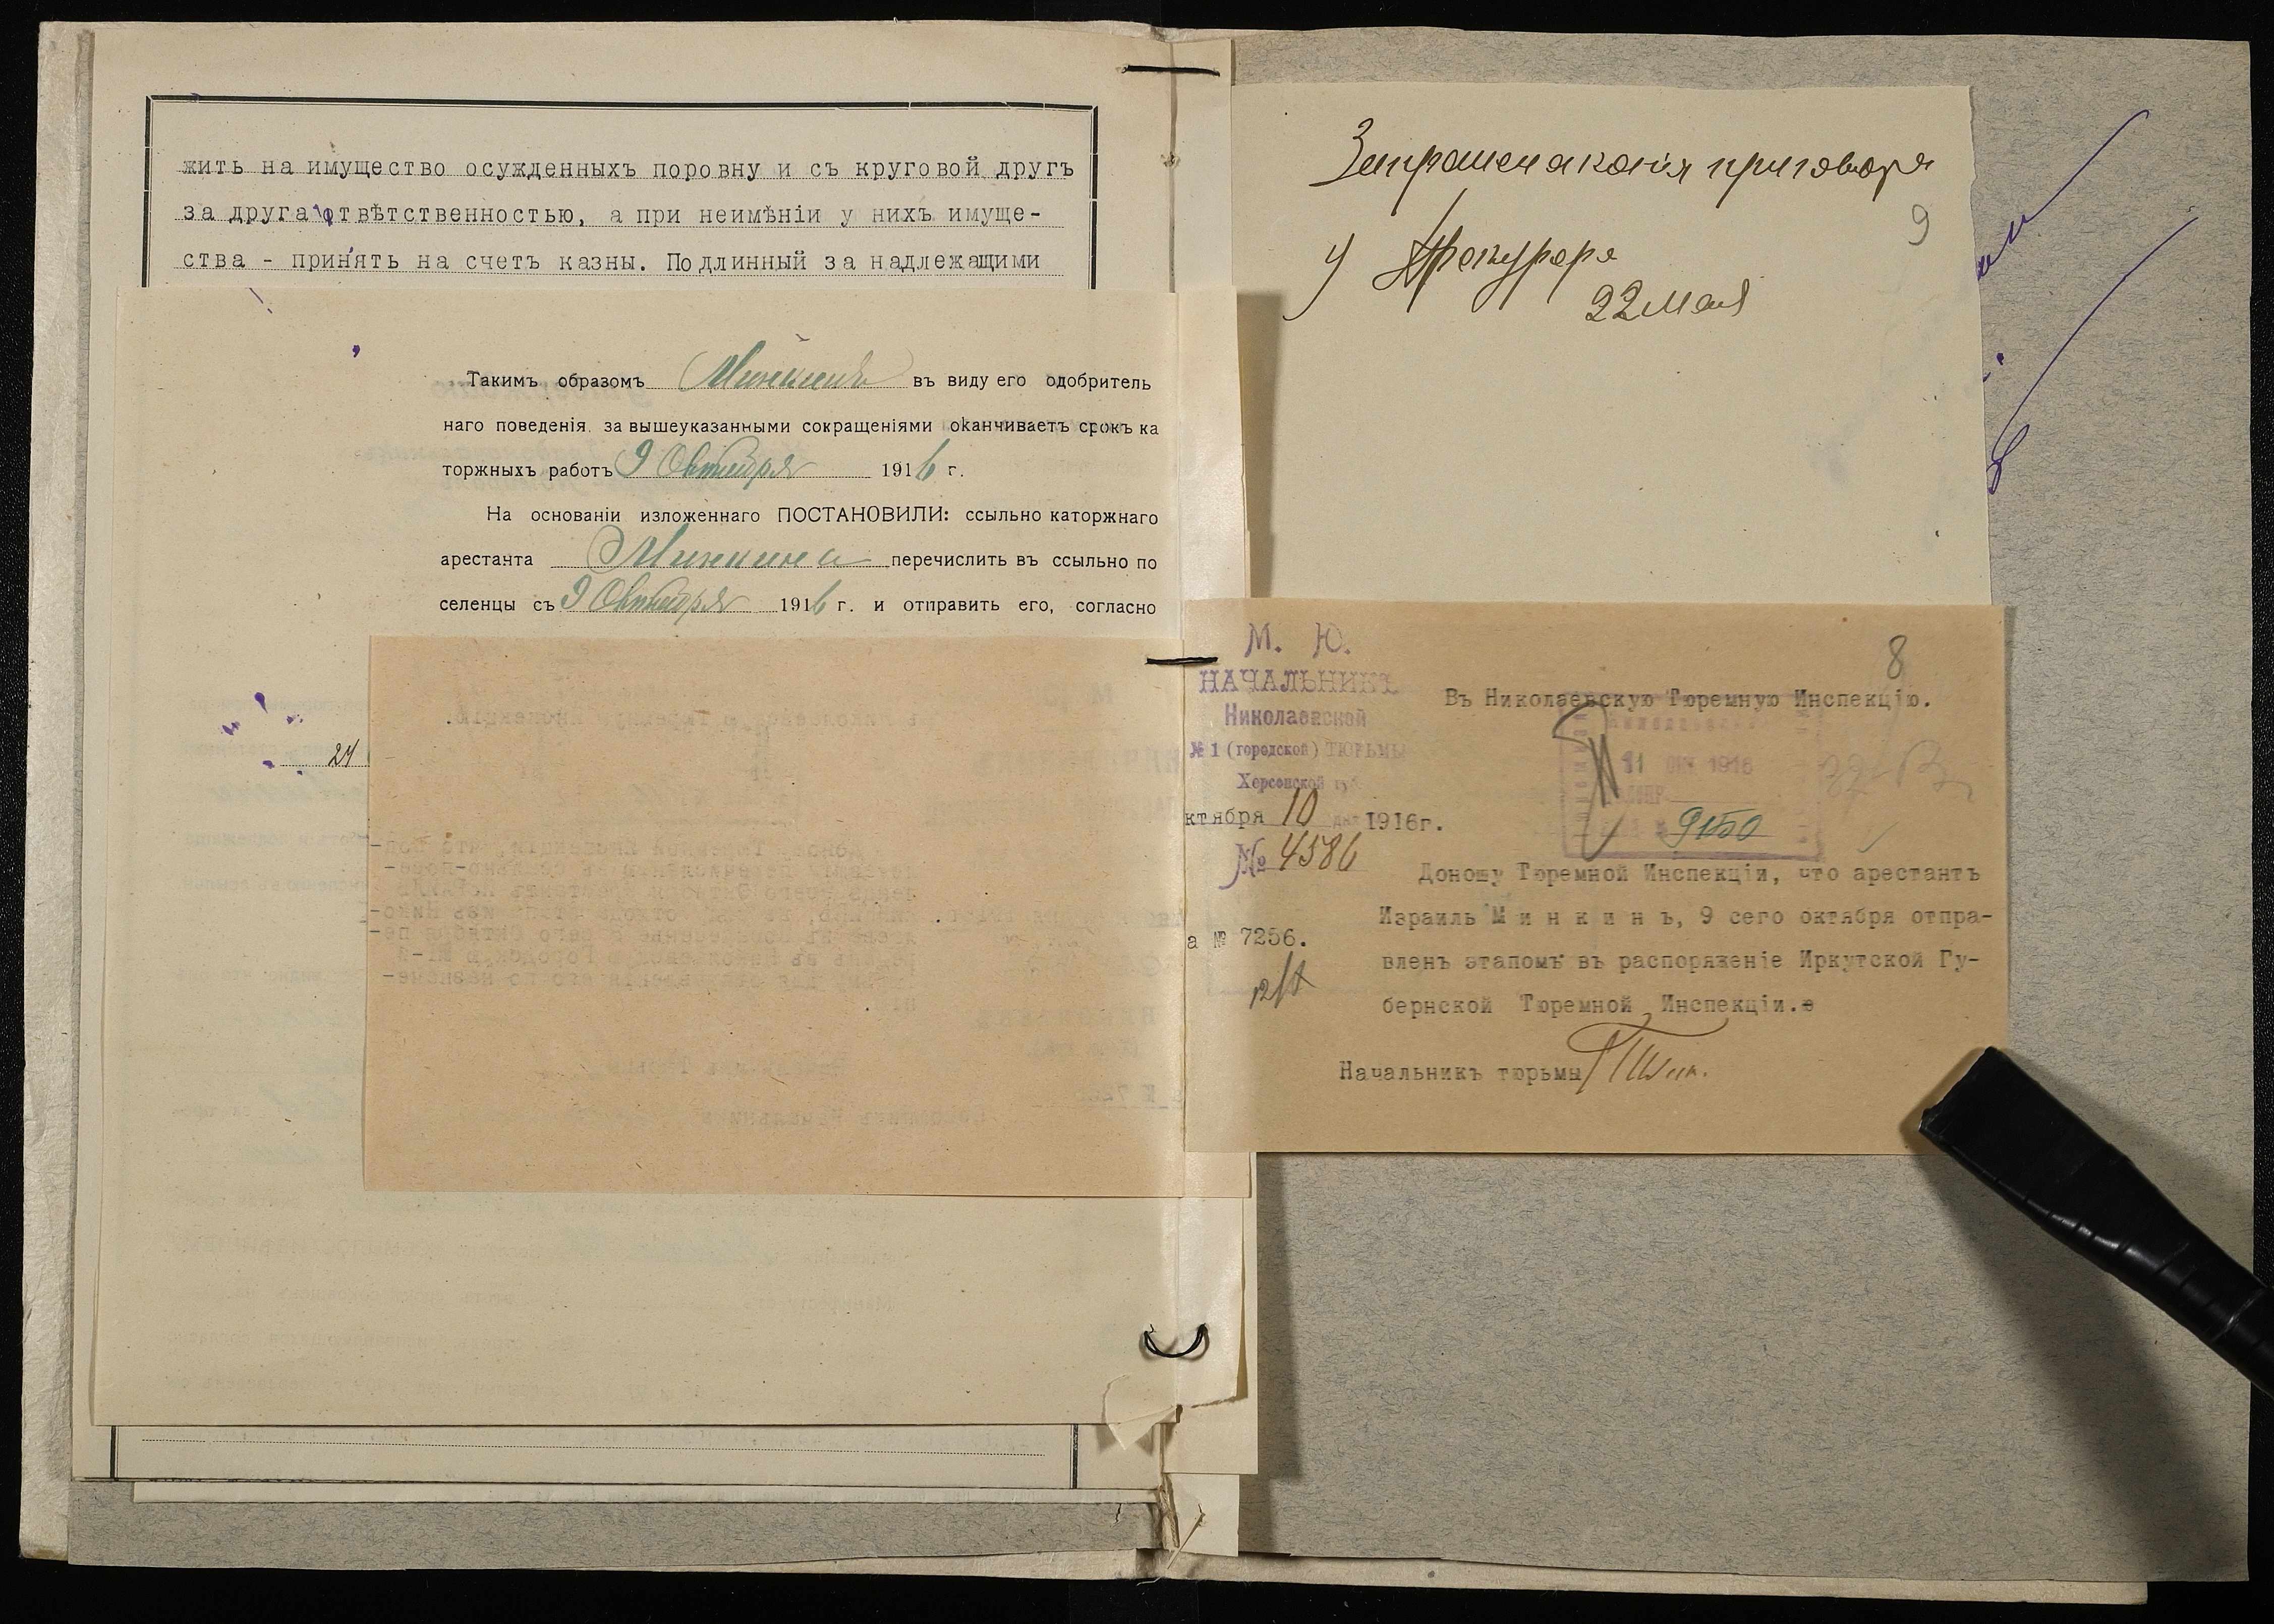 жить на имущество осужденныхъ поровну и съ круговой другъ
за друга отвѣтственностью, а при неимѣніи у нихъ имуще-
ства - принять на счетъ казны. Подлинный за надлежащими
Такимъ образомъ Минкинъ въ виду его одобритель
наго поведенія за вышеуказанными сокращеніями оканчиваетъ срокъ ка
торжныхъ работъ 9 Октября 1916 г.
На основаніи изложеннаго ПОСТАНОВИЛИ: ссыльно каторжнаго
арестанта Минкина перечислить въ ссыльно по
селенцы съ 9 Октября 1916 г. и отправить его, согласно
24
Запрошена копія приговора
9
у Прокурора
22 Мая
8
М. Ю.
НАЧАЛЬНИКЪ
Николаевской
№ 1 (городской) ТЮРЬМЫ
Херсонской губ.
ктября 10 дня 1916г.
№ 4586
а № 7256.
Въ Николаевскую Тюремную Инспекцію.
11 ОКТ 1916
9150
Доношу Тюремной Инспекціи, что арестантъ
Израиль М и н к и н ъ, 9 сего октября отпра-
вленъ этапомъ въ распоряженіе Иркутской Гу-
бернской Тюремной Инспекціи.
Начальникъ тюрьмы